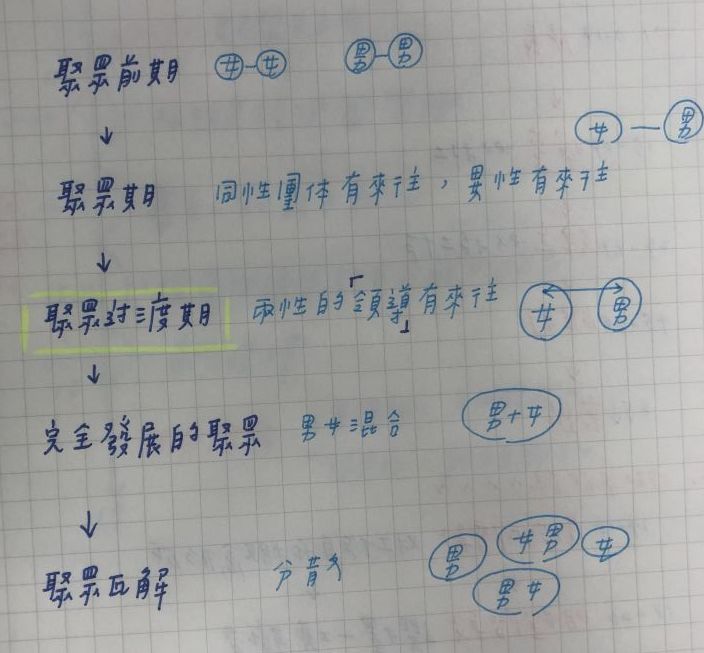 聚眾前期 女-女 男-男
↓
女 — 男
聚眾期 同性團体有來往，異性有來往
↓
聚眾过渡期 兩性的「領導」有來往 女 ↔ 男
↓
完全發展的聚眾 男女混合 男+女
↓
聚眾瓦解 分散 男 女男 女
男女